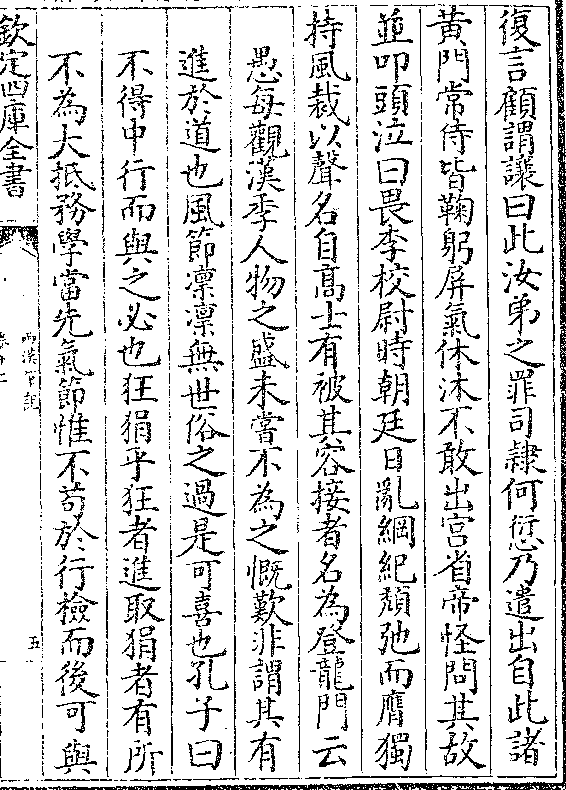 復言顧謂讓曰此汝弟之罪司隷何愆乃遣出自此諸
黄門常侍皆鞠躬屏氣休沐不敢出宫省帝怪問其故
並叩頭泣曰畏李校尉時朝廷日亂綱紀頽弛而膺獨
持風裁以聲名自高士有被其容接者名為登龍門云
愚每觀漢季人物之盛未嘗不為之慨歎非謂其有
進於道也風節凛凛無世俗之過是可喜也孔子曰
不得中行而與之必也狂狷乎狂者進取狷者有所
不為大抵務學當先氣節惟不苟於行檢而後可與
欽定四庫全書
五